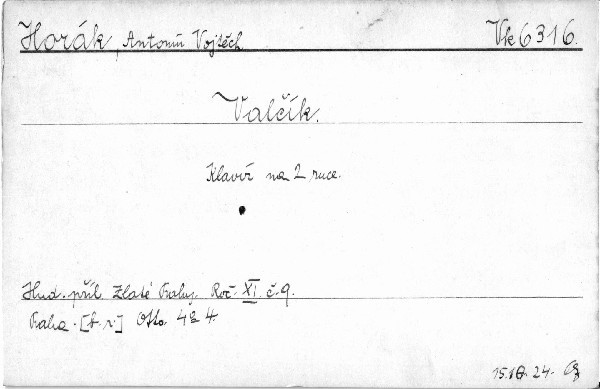 Horák, Antonín Vojtěch. Vk 6316.
Valčík.
Klavír na 2 ruce.
Hud. příl. Zlaté Prahy. Roč. XI. č. 9.
Praha. [b. r.] Otto. 4
15. 24.